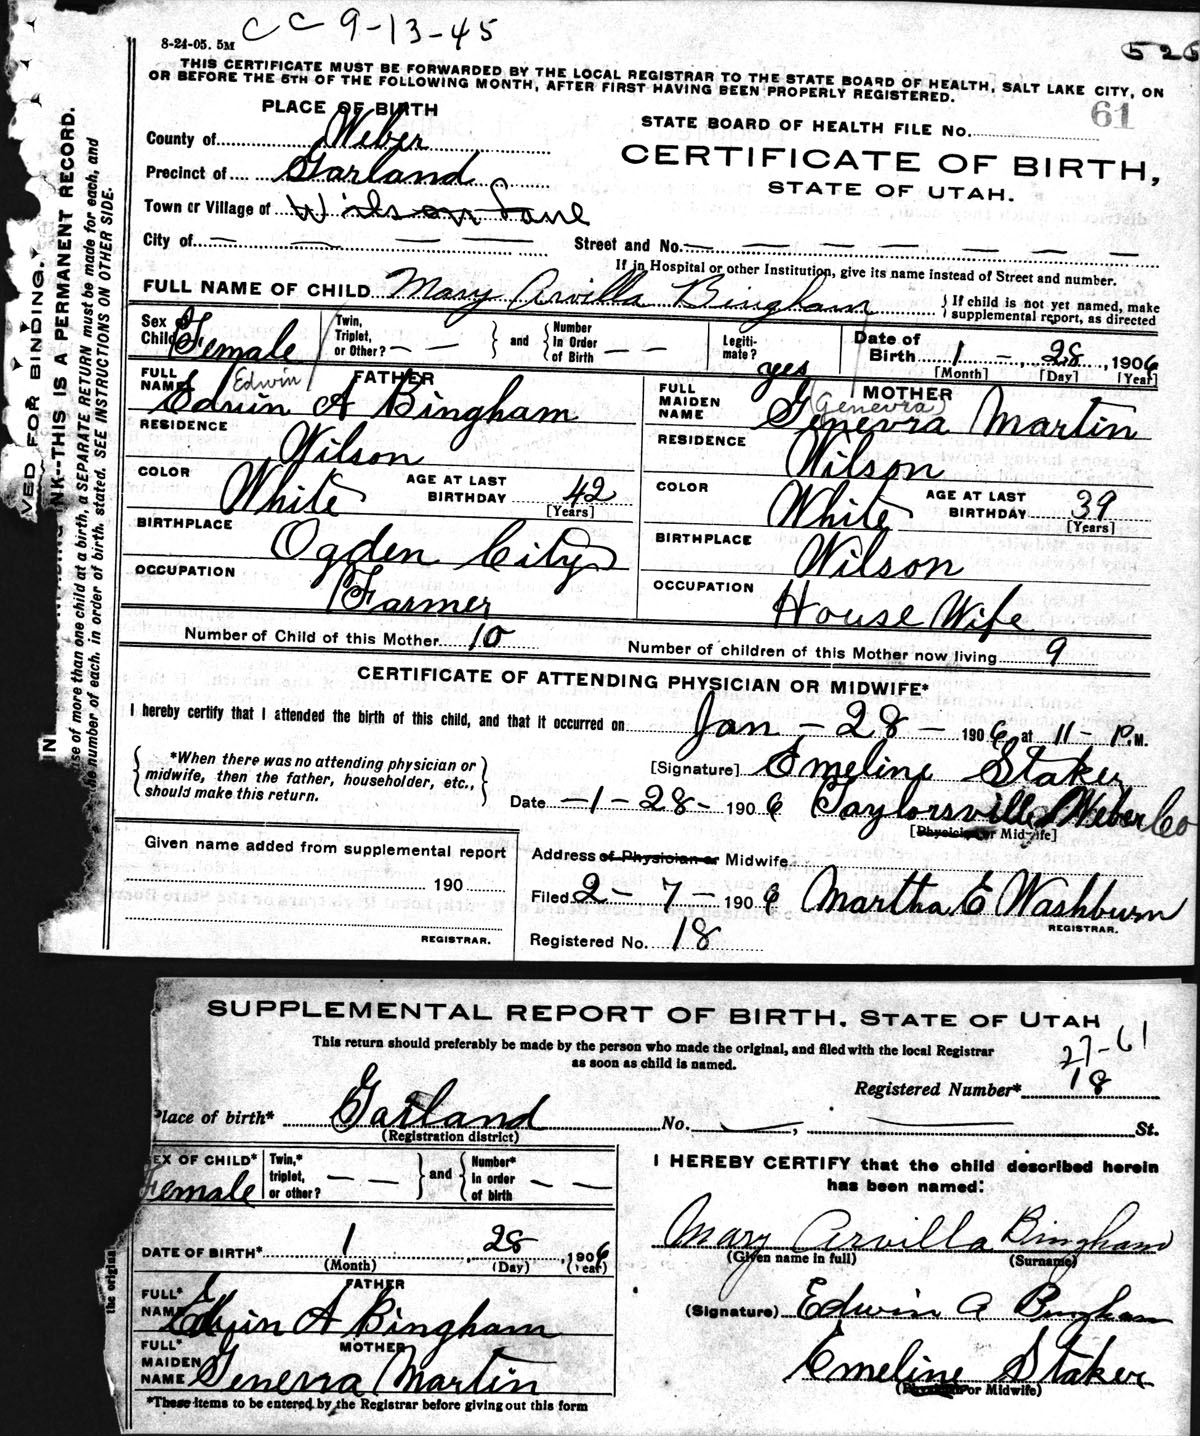 CC 9-13-45
8-24-05. 5M
526
THIS CERTIFICATE MUST BE FORWARDED BY THE LOCAL REGISTRAR TO THE STATE BOARD OF HEALTH, SALT LAKE CITY, ON
OR BEFORE THE 5TH OF THE FOLLOWING MONTH, AFTER FIRST HAVING BEEN PROPERLY REGISTERED.
PLACE OF BIRTH
STATE BOARD OF HEALTH FILE No. 61
County of Weber
CERTIFICATE OF BIRTH,
Precinct of Garland
STATE OF UTAH.
Town or Village of Wilson Lane
City of — — — — Street and No. — — — — — — —
If in Hospital or other Institution, give its name instead of Street and number.
FULL NAME OF CHILD Mary Arvilla Bingham } If child is not yet named, make
supplemental report, as directed
Sex of Child Female Twin, Triplet, or Other? — — } and { Number In Order of Birth — — Legiti-mate? yes Date of Birth 1 - 28, 1906
[Month] [Day] [Year]
FATHER
FULL NAME Edwin Edwin A Bingham
RESIDENCE Wilson
COLOR White AGE AT LAST BIRTHDAY 42
[Years]
BIRTHPLACE Ogden City
OCCUPATION Farmer
MOTHER
FULL MAIDEN NAME (Genevra) Genevra Martin
RESIDENCE Wilson
COLOR White AGE AT LAST BIRTHDAY 39
[Years]
BIRTHPLACE Wilson
OCCUPATION House Wife
Number of Child of this Mother 10 Number of children of this Mother now living 9
CERTIFICATE OF ATTENDING PHYSICIAN OR MIDWIFE*
I hereby certify that I attended the birth of this child, and that it occurred on Jan - 28 - 1906 at 11- P.M.
{ *When there was no attending physician or
midwife, then the father, householder, etc.,
should make this return. }
[Signature] Emeline Staker
Date -1-28- 1906 Taylorsville Weber Co
[Physician or Midwife]
Given name added from supplemental report
190
REGISTRAR.
Address of Physician or Midwife
Filed 2-7- 1906 Martha E Washburn
REGISTRAR.
Registered No. 18
VED FOR BINDING.
NK--THIS IS A PERMANENT RECORD.
se of more than one child at a birth, a SEPARATE RETURN must be made for each, and
he number of each, in order of birth, stated. SEE INSTRUCTIONS ON OTHER SIDE.
SUPPLEMENTAL REPORT OF BIRTH, STATE OF UTAH
This return should preferably be made by the person who made the original, and filed with the local Registrar
as soon as child is named.
27-61
Registered Number* 18
Place of birth* Garland No. —, — St.
(Registration district)
SEX OF CHILD* Female Twin,* triplet, or other? — — } and { Number* in order of birth — —
DATE OF BIRTH* 1 28, 1906
(Month) (Day) (Year)
FATHER
FULL* NAME Edwin A Bingham
MOTHER
FULL* MAIDEN NAME Genevra Martin
*These items to be entered by the Registrar before giving out this form
I HEREBY CERTIFY that the child described herein
has been named:
Mary Arvilla Bingham
(Given name in full) (Surname)
(Signature) Edwin A Bingham
Emeline Staker
(Physician or Midwife)
the original